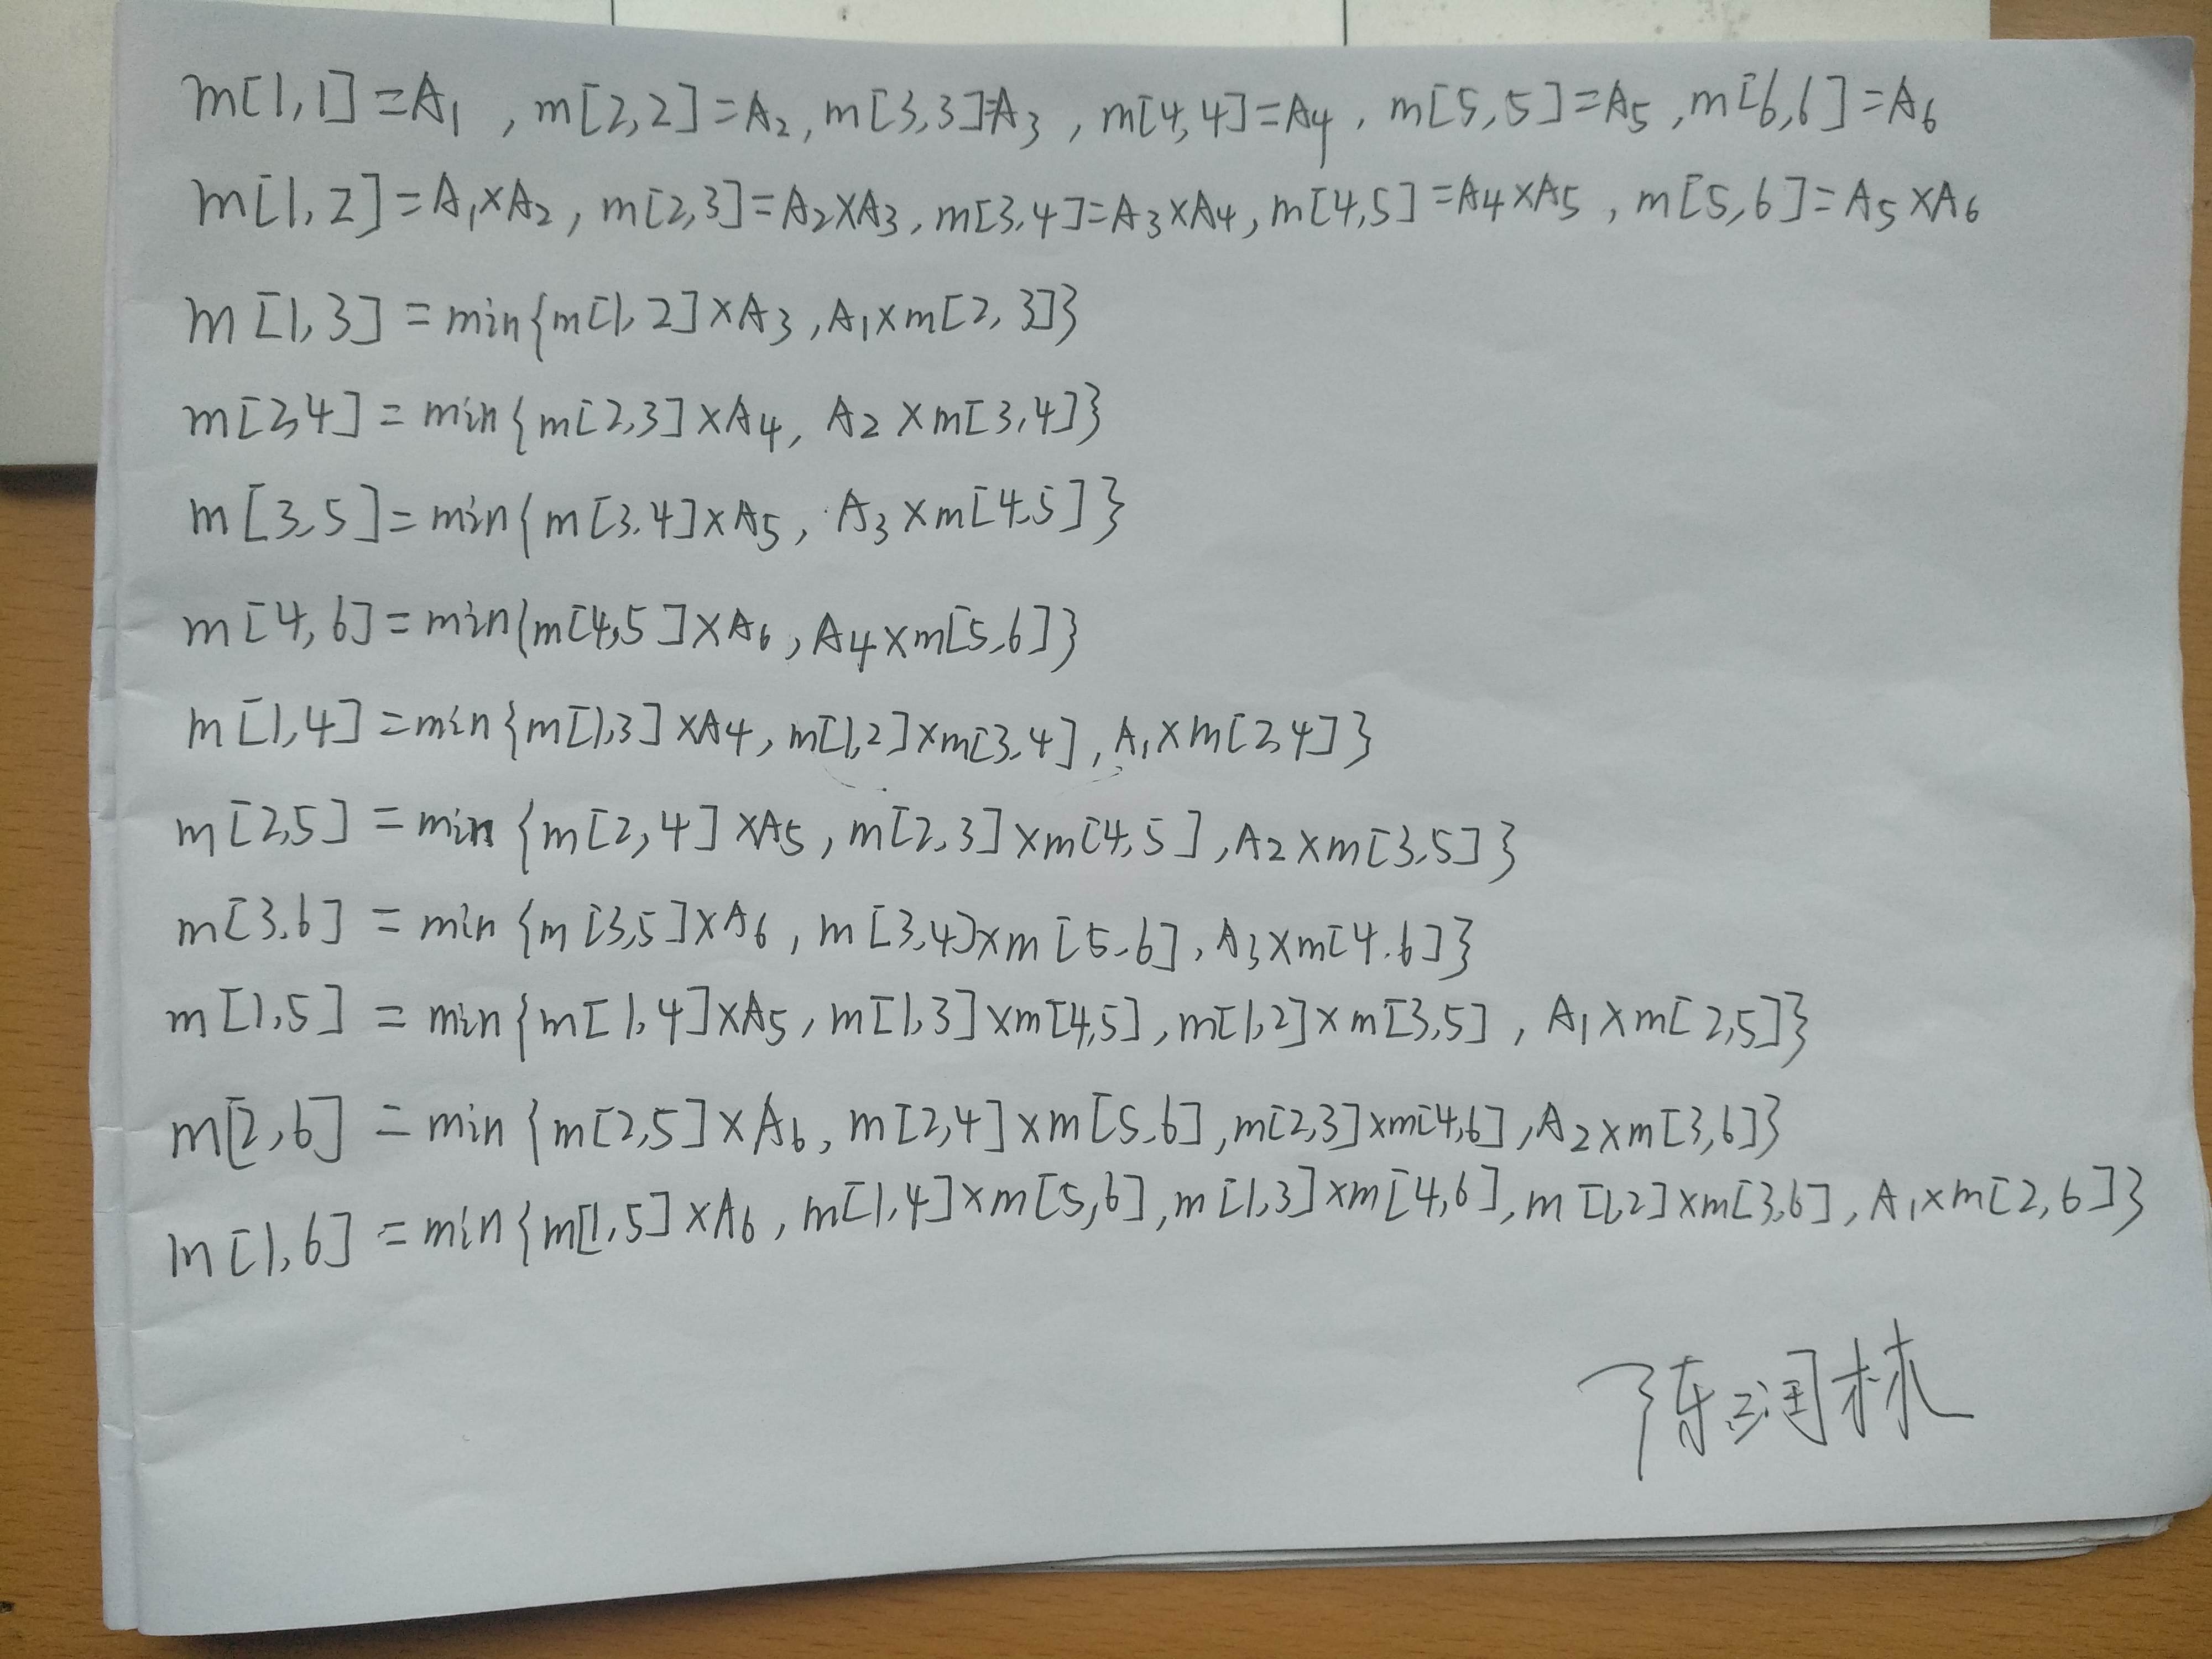 m[1,1]=A₁, m[2,2]=A₂, m[3,3]=A₃, m[4,4]=A₄, m[5,5]=A₅, m[6,6]=A₆
m[1,2]=A₁×A₂, m[2,3]=A₂×A₃, m[3,4]=A₃×A₄, m[4,5]=A₄×A₅, m[5,6]=A₅×A₆
m[1,3]=min{m[1,2]×A₃, A₁×m[2,3]}
m[2,4]=min{m[2,3]×A₄, A₂×m[3,4]}
m[3,5]=min{m[3,4]×A₅, A₃×m[4,5]}
m[4,6]=min{m[4,5]×A₆, A₄×m[5,6]}
m[1,4]=min{m[1,3]×A₄, m[1,2]×m[3,4], A₁×m[2,4]}
m[2,5]=min{m[2,4]×A₅, m[2,3]×m[4,5], A₂×m[3,5]}
m[3,6]=min{m[3,5]×A₆, m[3,4]×m[5,6], A₃×m[4,6]}
m[1,5]=min{m[1,4]×A₅, m[1,3]×m[4,5], m[1,2]×m[3,5], A₁×m[2,5]}
m[2,6]=min{m[2,5]×A₆, m[2,4]×m[5,6], m[2,3]×m[4,6], A₂×m[3,6]}
m[1,6]=min{m[1,5]×A₆, m[1,4]×m[5,6], m[1,3]×m[4,6], m[1,2]×m[3,6], A₁×m[2,6]}
陈润林